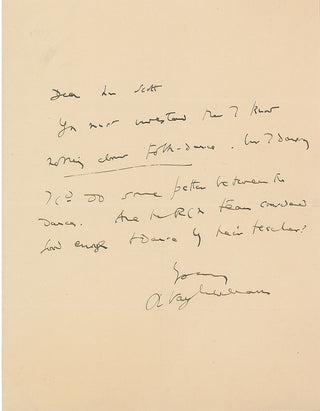 Dear Mr Scott
You must understand that I know
nothing about Folk-Dance. but I daresay
I cd do some patter between the
dances. Are the RCM team considered
good enough to dance by their teacher?
Yours
R Vaughan Williams